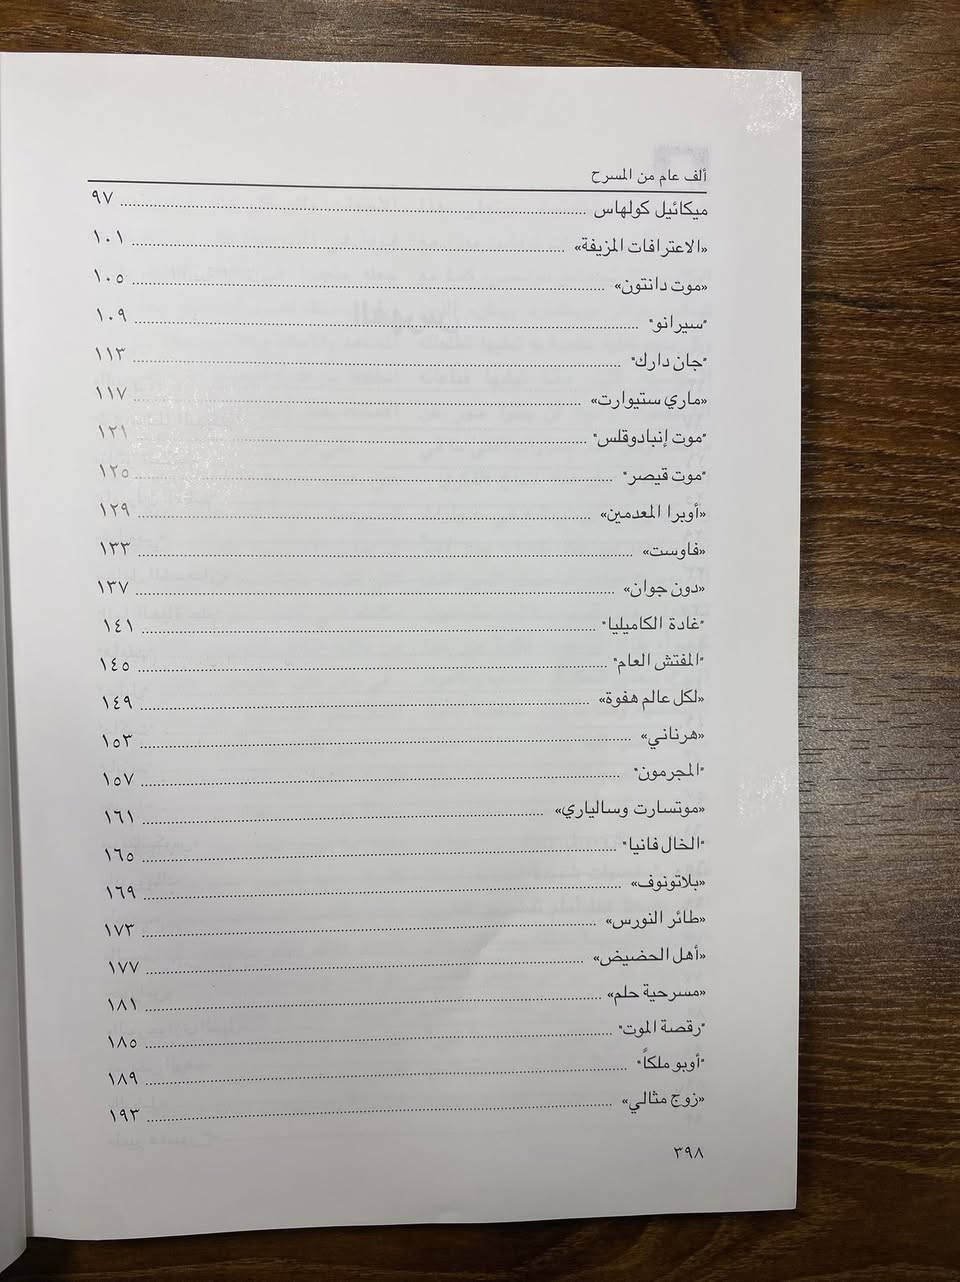 ألف عام من المسرح
ميكائيل كولهاس ... ٩٧
«الاعترافات المزيفة» ... ١٠١
«موت دانتون» ... ١٠٥
"سيرانو" ... ١٠٩
"جان دارك" ... ١١٣
«ماري ستيوارت» ... ١١٧
"موت إنبادوقلس" ... ١٢١
"موت قيصر" ... ١٢٥
«أوبرا المعدمين» ... ١٢٩
«فاوست» ... ١٣٣
«دون جوان» ... ١٣٧
"غادة الكاميليا" ... ١٤١
"المفتش العام" ... ١٤٥
«لكل عالم هفوة» ... ١٤٩
«هرناني» ... ١٥٣
"المجرمون" ... ١٥٧
«موتسارت وساليري» ... ١٦١
"الخال فانيا" ... ١٦٥
«بلاتونوف» ... ١٦٩
«طائر النورس» ... ١٧٣
«أهل الحضيض» ... ١٧٧
«مسرحية حلم» ... ١٨١
"رقصة الموت" ... ١٨٥
"أوبو ملكاً" ... ١٨٩
«زوج مثالي» ... ١٩٣
٣٩٨